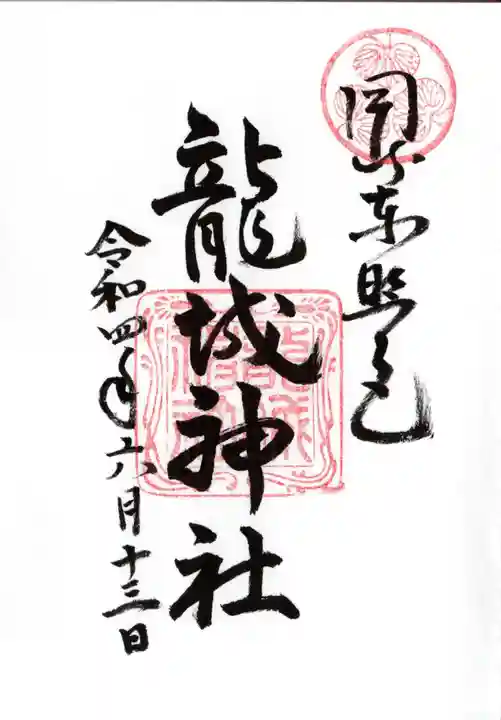 岡崎東照宮
龍城神社
令和四年六月十三日